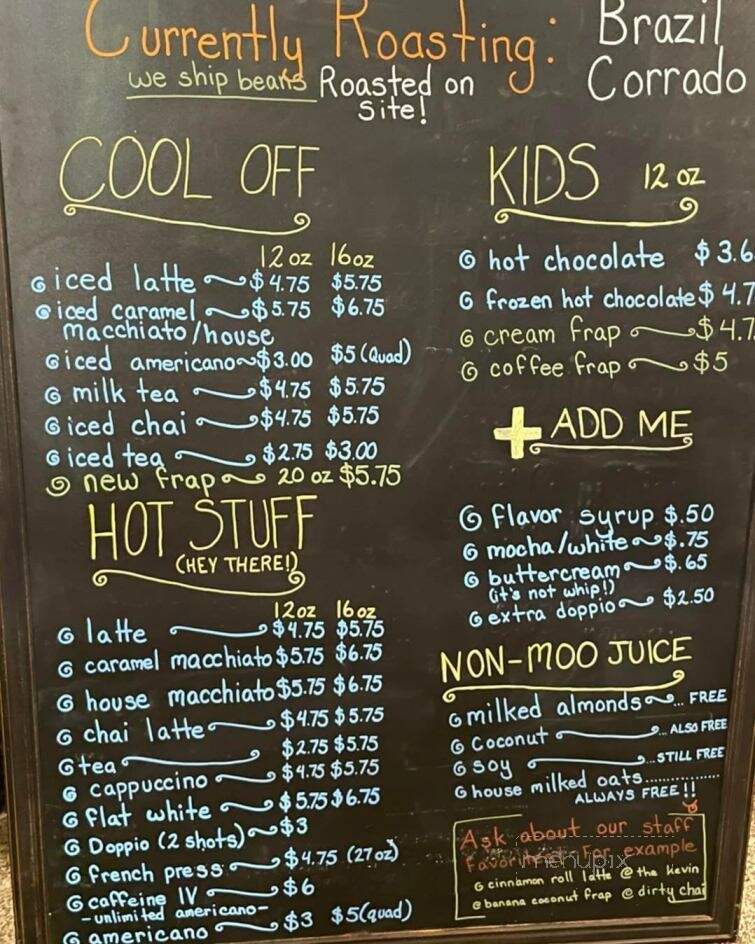 Currently Roasting: Brazil
Corrado
we ship beans Roasted on
site!
COOL OFF
12 oz 16 oz
iced latte $4.75 $5.75
iced caramel $5.75 $6.75
macchiato/house
iced americano $3.00 $5 (Quad)
milk tea $4.75 $5.75
iced chai $4.75 $5.75
iced tea $2.75 $3.00
new frap 20 oz $5.75
HOT STUFF
(HEY THERE!)
12 oz 16 oz
latte $4.75 $5.75
caramel macchiato $5.75 $6.75
house macchiato $5.75 $6.75
chai latte $4.75 $5.75
tea $2.75 $5.75
cappuccino $4.75 $5.75
flat white $5.75 $6.75
Doppio (2 shots) $3
french press $4.75 (27 oz)
caffeine IV $6
-unlimited americano-
americano $3 $5 (quad)
KIDS 12 oz
hot chocolate $3.6
frozen hot chocolate $4.7
cream frap $4.7
coffee frap $5
+ ADD ME
flavor syrup $.50
mocha/white $.75
buttercream $.65
(it's not whip!)
extra doppio $2.50
NON-MOO JUICE
milked almonds ... FREE
coconut ... ALSO FREE
soy ... STILL FREE
house milked oats................
ALWAYS FREE!!
Ask about our staff
favorites! For example
cinnamon roll latte @ the kevin
banana coconut frap @ dirty chai
menupix